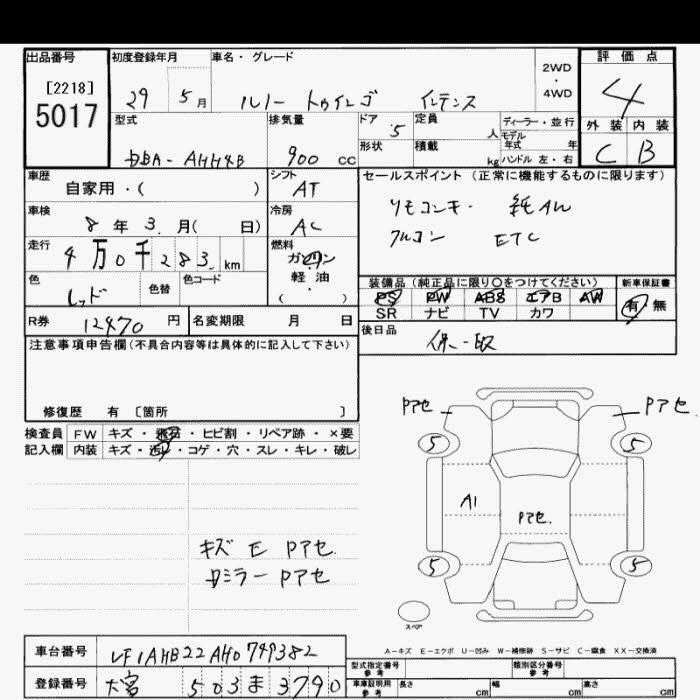 出品番号
[2218]
5017
初度登録年月
29 5月
車名・グレード
ルノー トゥインゴ インテンス
2WD
・
4WD
評価点
4
外装 内装
C B
型式
DBA-AHH4B
排気量
900 cc
ドア 5
形状
定員 人
積載 kg
ディーラー・並行
モデル
年式 年
ハンドル 左・右
車歴
自家用・( )
シフト
AT
セールスポイント (正常に機能するものに限ります)
リモコンキー 純AW
フルコン ETC
車検
8年3月( 日)
冷房
AC
走行
4万0千283km
燃料
ガソリン
軽・油
( )
色
レッド
色替
色コード
装備品 (純正品に限り○をつけてください)
PS PW ABS エアB AW
SR ナビ TV カワ
新車保証書
有 無
R券
12470円
名変期限 月 日
後日品
保・取
注意事項申告欄(不具合内容等は具体的に記入して下さい)
修復歴 有 〔箇所 〕
検査員
記入欄
FW キズ・飛石・ヒビ割・リペア跡・×要
内装 キズ・汚れ・コゲ・穴・スレ・キレ・破レ
キズ E Pアセ
Dミラー Pアセ
Pアセ
Pアセ
5
5
A1
Pアセ
5
5
スペア
A-キズ E-エクボ U-凹み W-補修跡 S-サビ C-腐食 XX-交換済
車台番号
VF1AHB22AH0749382
登録番号
大宮 503ま3790
型式指定番号
参考
類別区分番号
参考
車庫証明用
参考
長さ cm
幅 cm
高さ cm